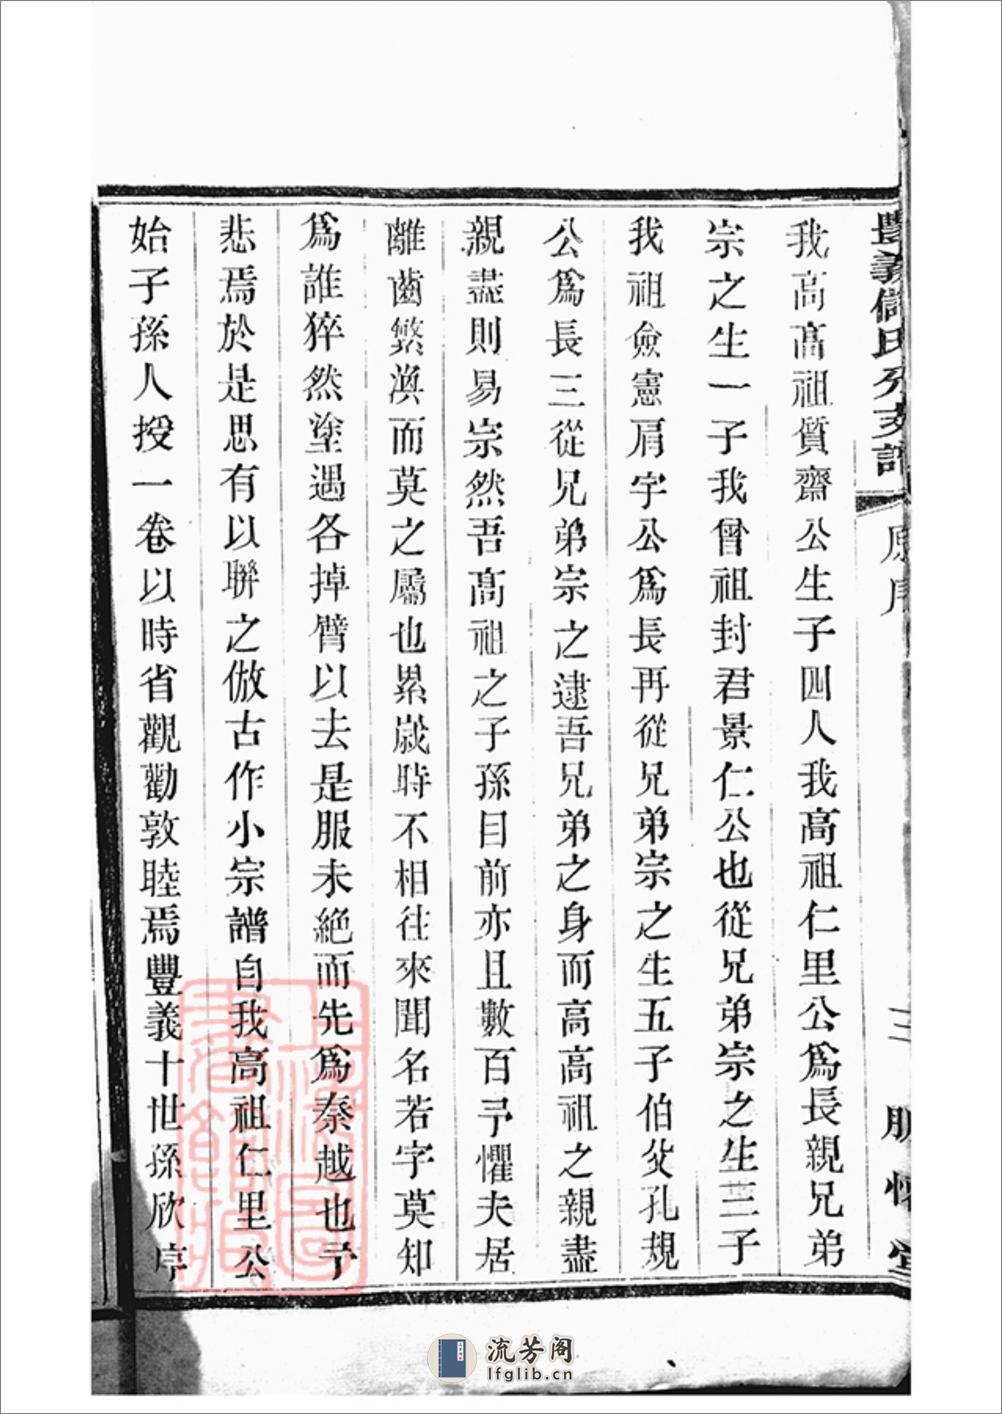 豐義儲氏分支譜
原序
三
我高高祖質齋公生子四人我高祖仁里公爲長親兄弟
宗之生一子我曾祖封君景仁公也從兄弟宗之生三子
我祖僉憲肩宇公爲長再從兄弟宗之生五子伯父孔規
公爲長三從兄弟宗之逮吾兄弟之身而高高祖之親盡
親盡則易宗然吾高祖之子孫目前亦且數百予懼夫居
離齒繁渙而莫之屬也累歲時不相往來聞名若字莫知
爲誰猝然塗遇各掉臂以去是服未絕而先爲秦越也予
悲焉於是思有以聯之倣古作小宗譜自我高祖仁里公
始子孫人授一卷以時省觀勸敦睦焉豐義十世孫欣序
流芳阁
lfglib.cn